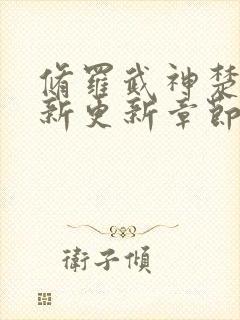 脩羅武神楚
新更新章節
衛子傾